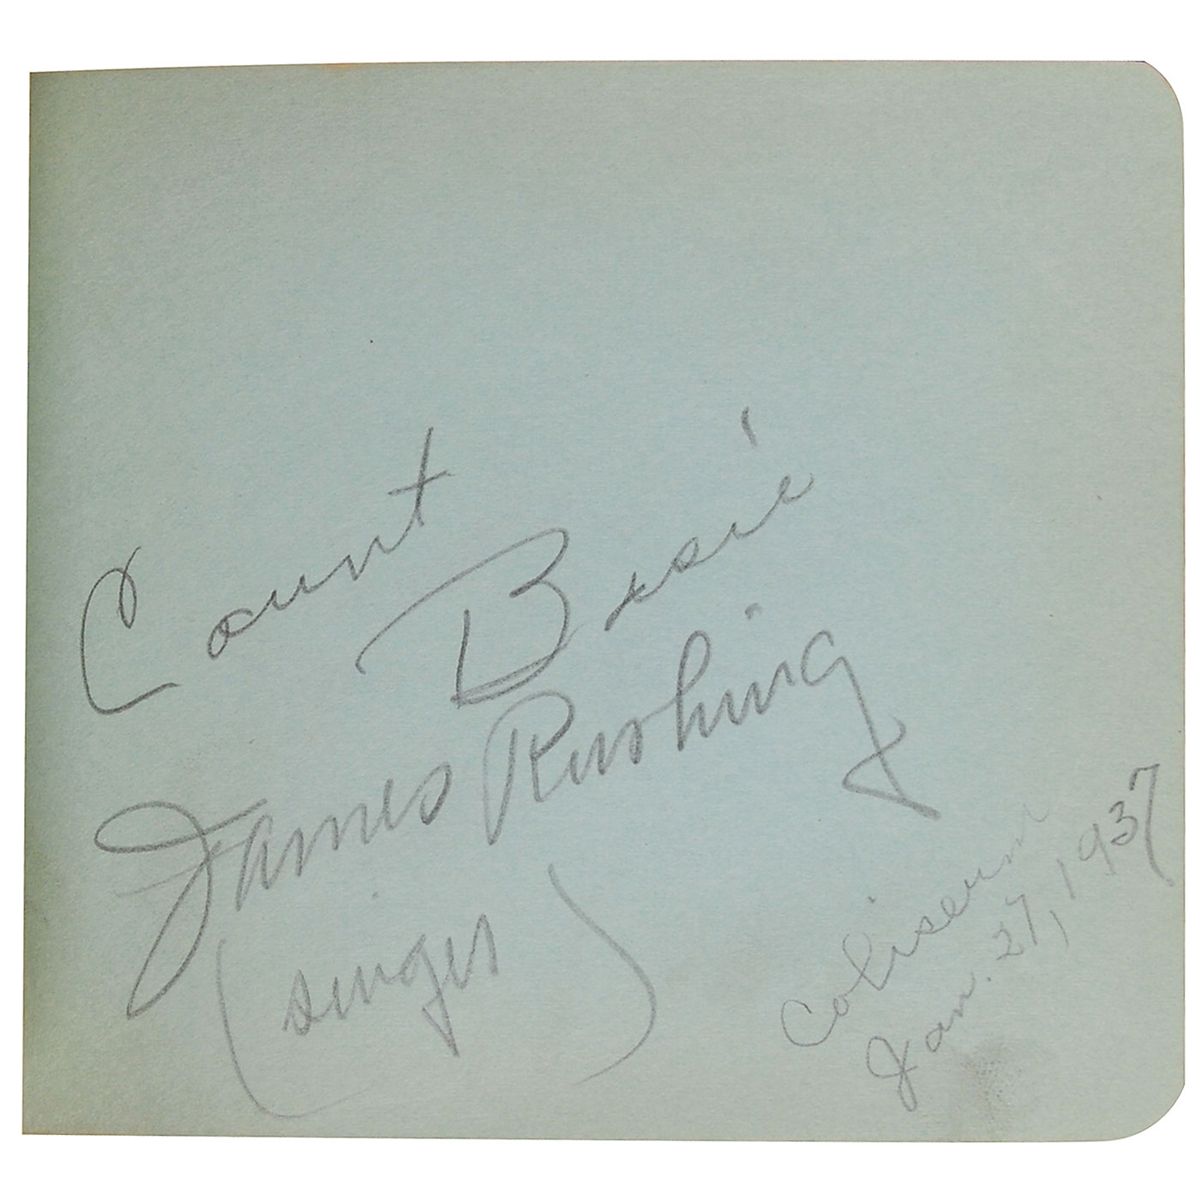 Count Basie
James Rushing
(singer)
Coliseum
Jan. 27, 1937